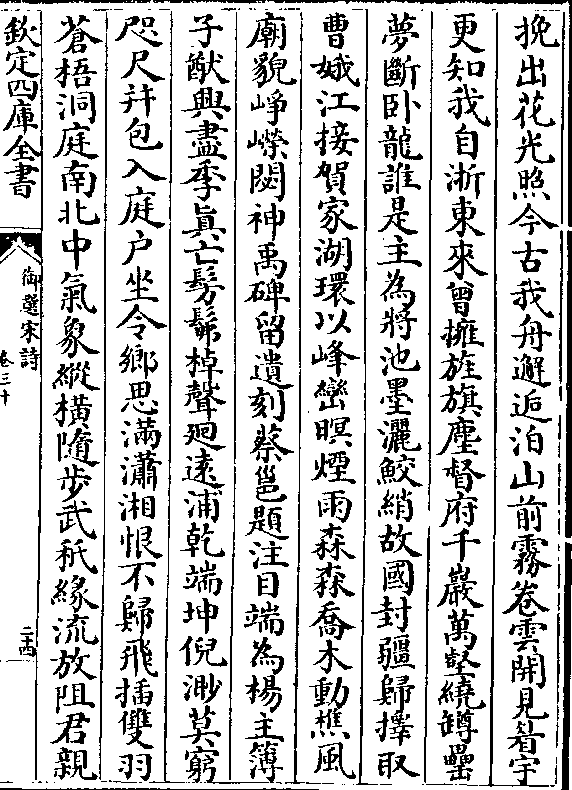 挽出花光照今古我舟邂逅泊山前霧卷雲開見眉宇
更知我自浙東來曾擁旌旗塵督府千巖萬壑繞罇罍
夢斷卧龍誰是主為將池墨灑鮫綃故國封疆歸擇取
曹娥江接賀家湖環以峰巒暝煙雨森森喬木動樵風
廟貌崢嶸閟神禹碑留遺刻蔡邕題注目端為楊主簿
子猷興盡季真亡髣髴棹聲廻遠浦乾端坤倪渺莫窮
咫尺幷包入庭户坐令鄉思滿瀟湘恨不歸飛插雙羽
蒼梧洞庭南北中氣象縱橫隨步武秖緣流放阻君親
欽定四庫全書
御選宋詩
卷三十
二十四